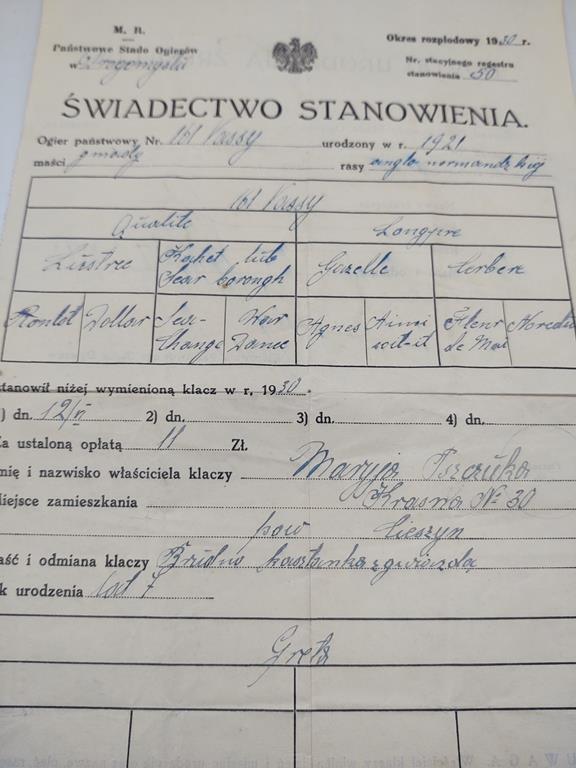 M. R.
Państwowe Stado Ogierów
w Drogomyślu
Okres rozpłodowy 1930 r.
Nr. stacyjnego regestru
stanowienia 50
ŚWIADECTWO STANOWIENIA.
Ogier państwowy Nr. 161 Vassy urodzony w r. 1921
maści gniady rasy anglo normandzkiej
161 Vassy
Qualite Longpre
Lustree Kephet lub Gazelle Cerbere
Sear borongh
Roulot Dollar Sea- War Agnes Aimsi Fleur Noredin
Change Dance wit-it de Mai
stanowił niżej wymienioną klacz w r. 1930.
) dn. 12/VI 2) dn. 3) dn. 4) dn.
Za ustaloną opłatą 11 Zł.
mię i nazwisko właściciela klaczy Maryja
iejsce zamieszkania Krasna No 30
pow Cieszyn
aść i odmiana klaczy kasztanka z gwiazdą
k urodzenia lat 7
Greta